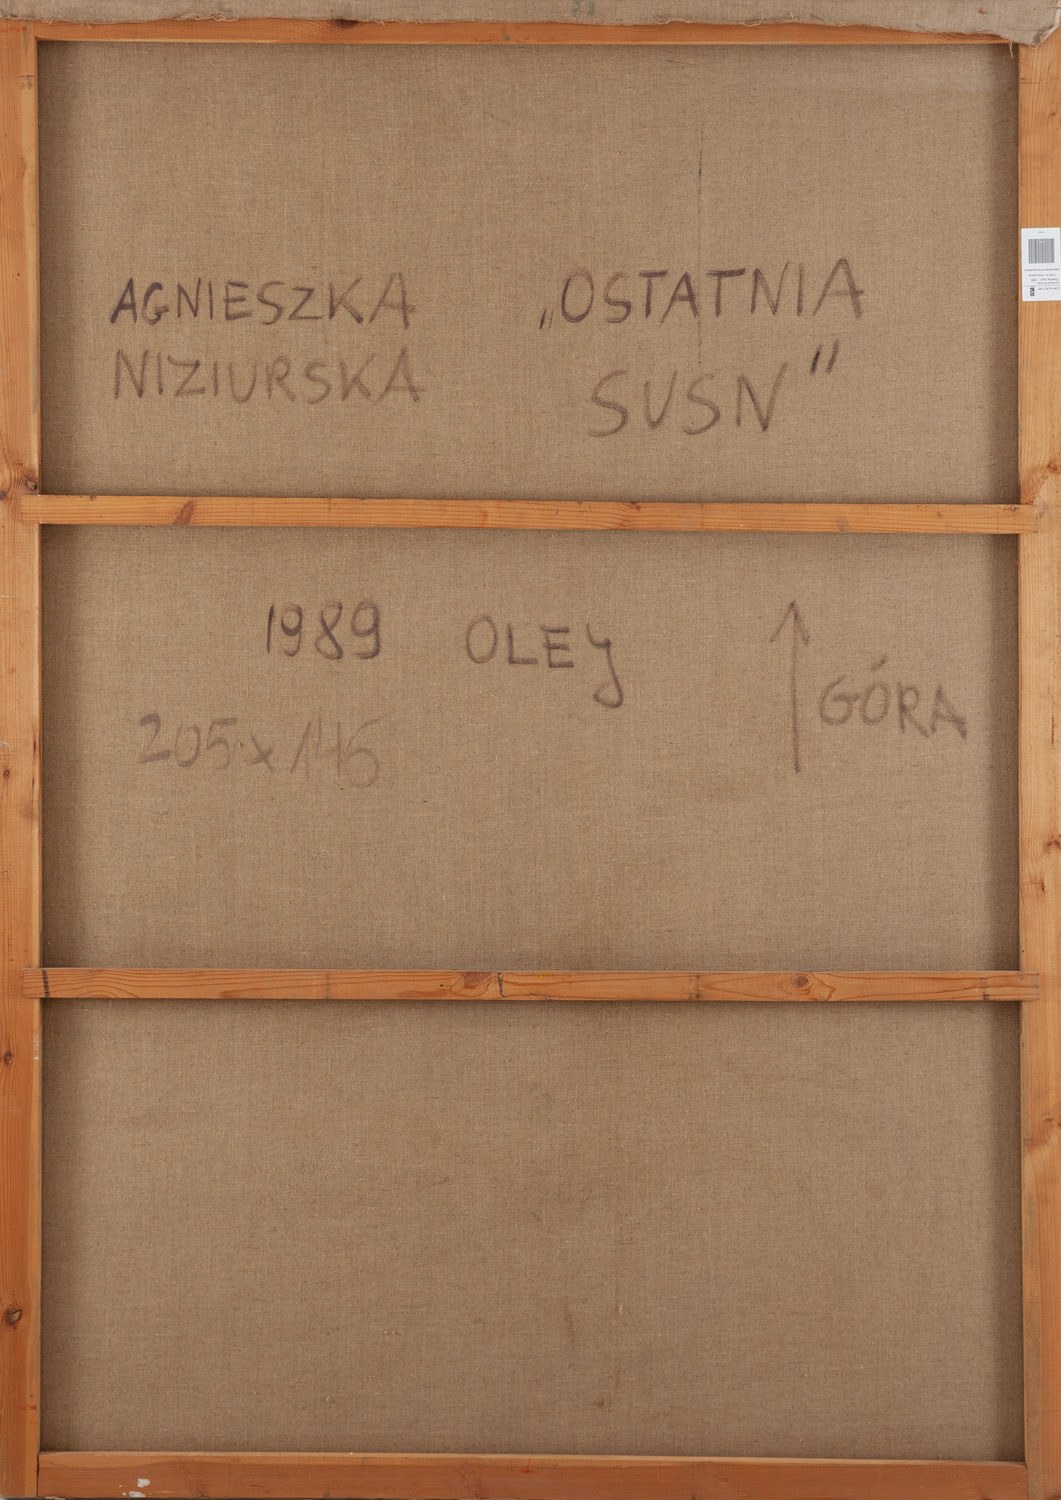 AGNIESZKA
NIZIURSKA
„OSTATNIA
SUSN"
1989 OLEY
205 x 145
↑ GÓRA